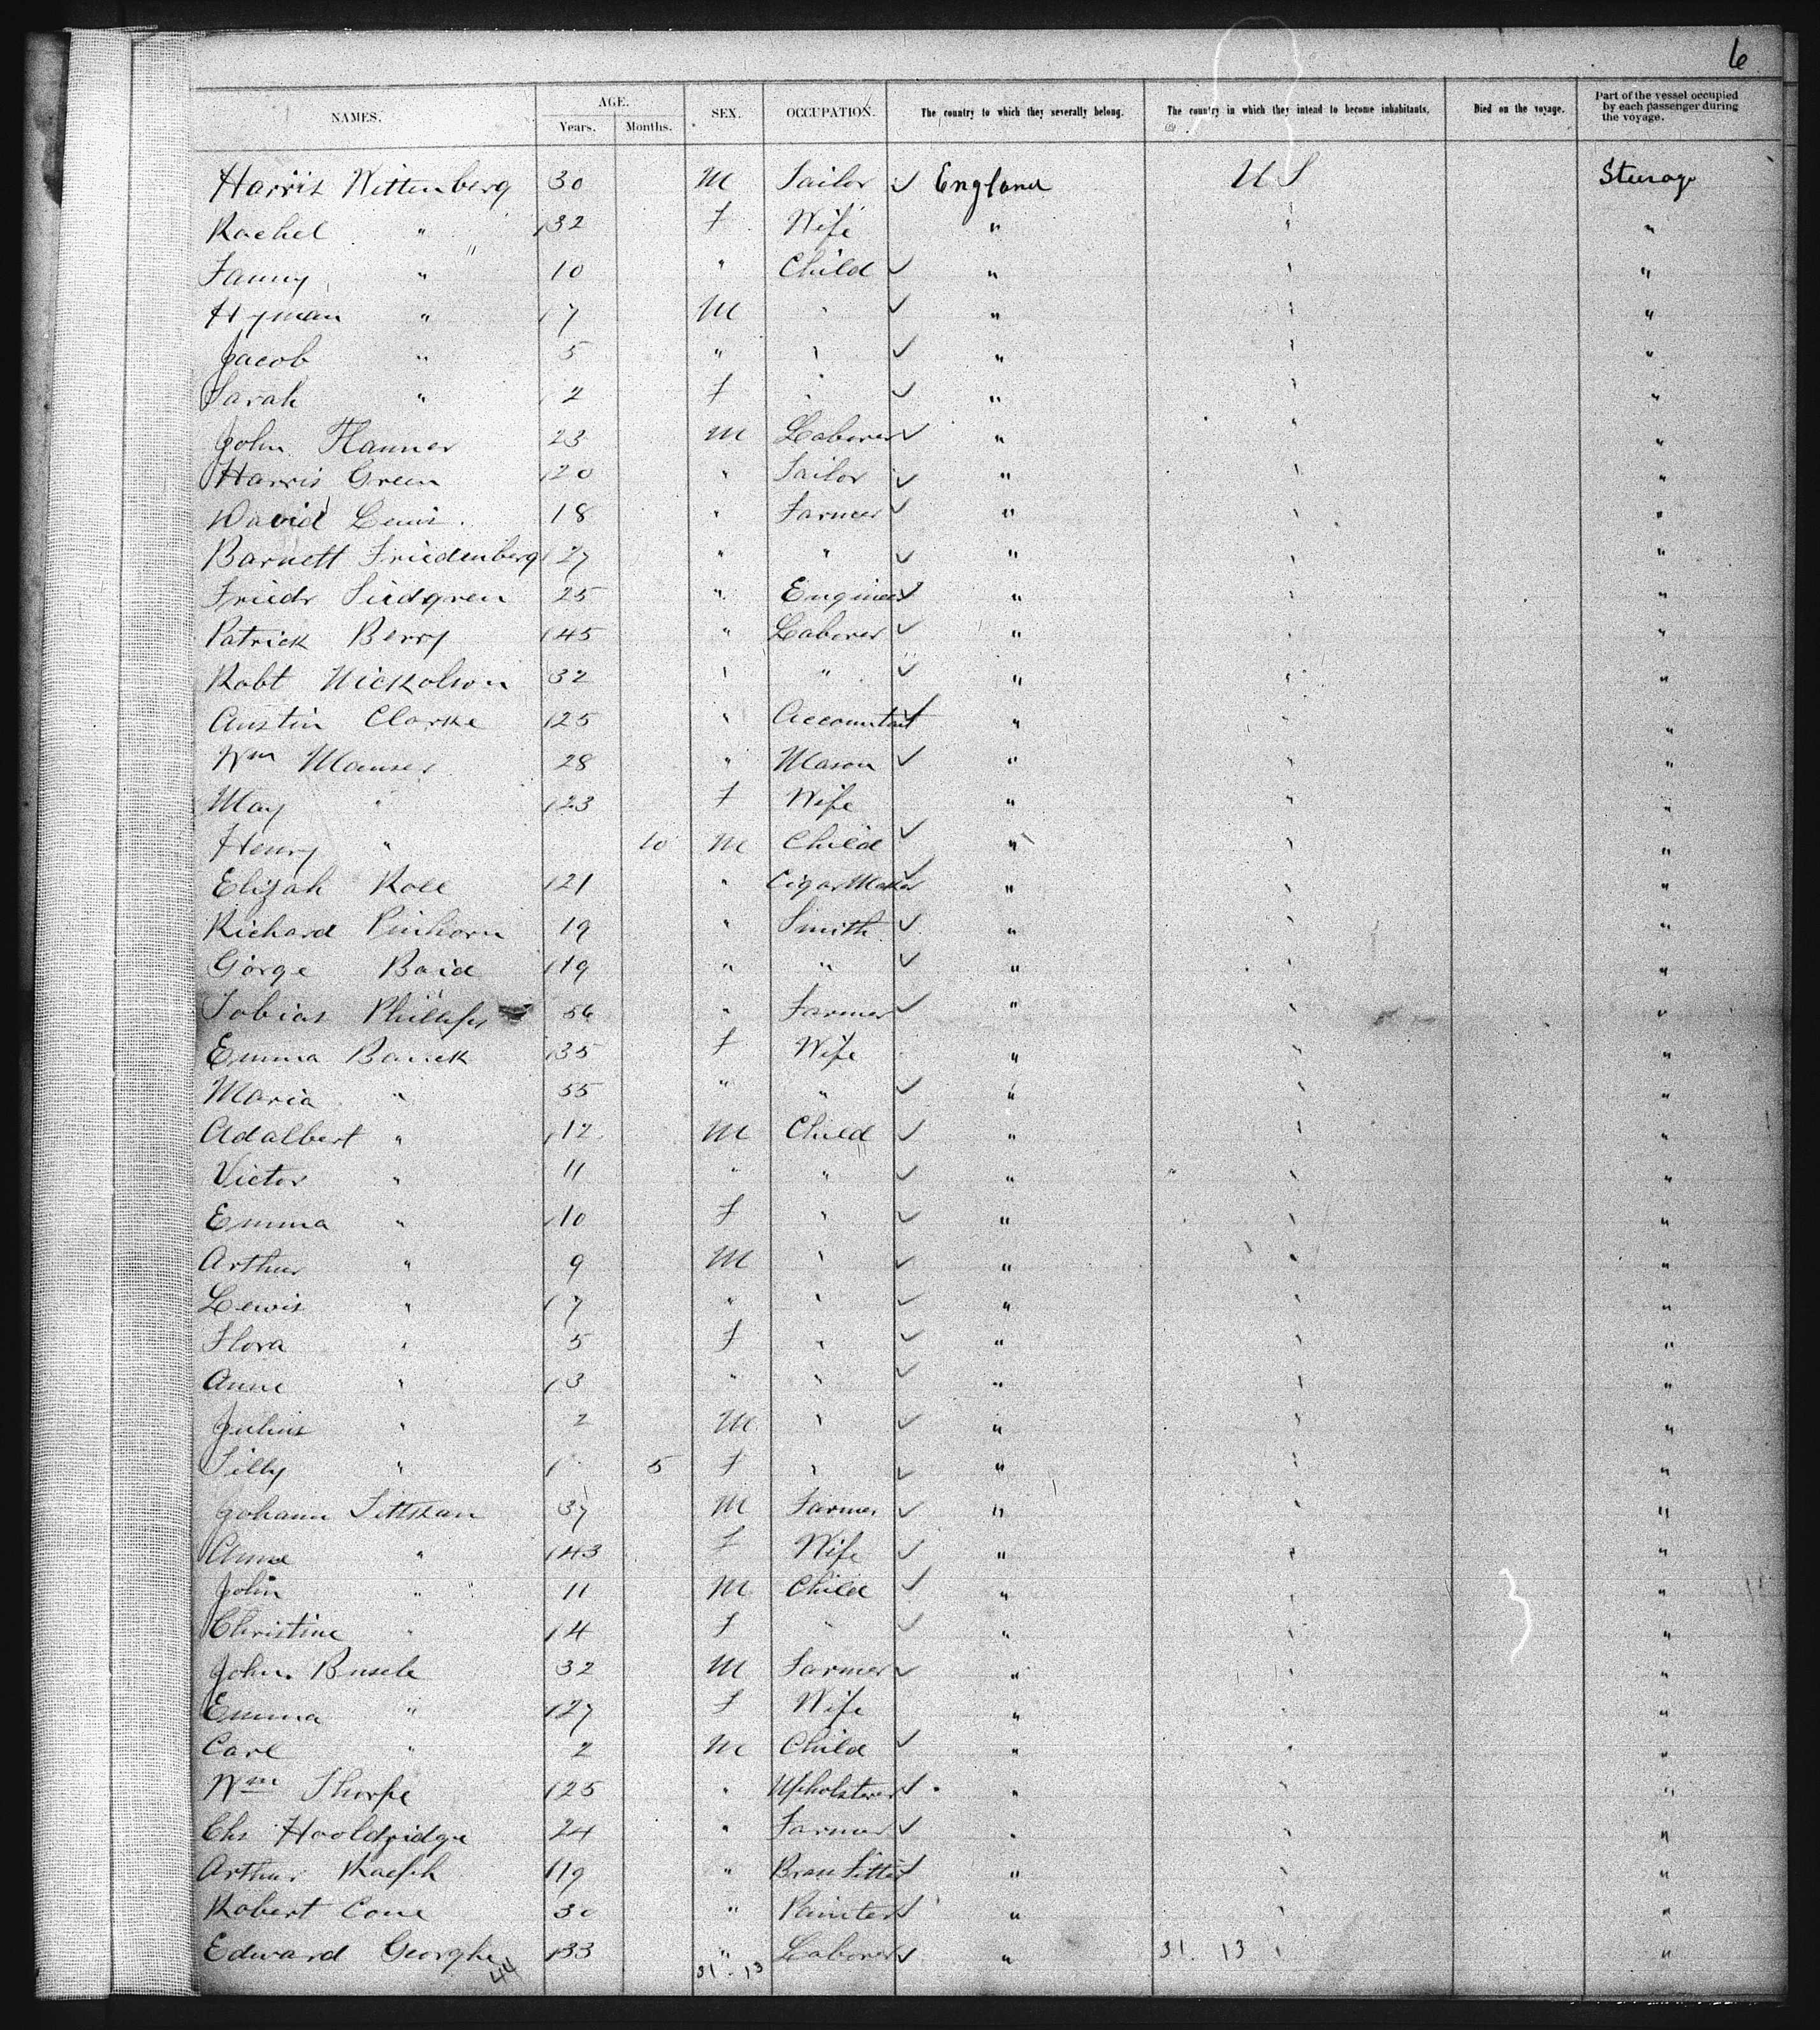 6
NAMES. AGE. Years. Months. SEX. OCCUPATION. The country to which they severally belong. The country in which they intend to become inhabitants. Died on the voyage. Part of the vessel occupied by each passenger during the voyage.
Harris Wittenberg 30 M Tailor ✓ England U S Steerage
Rachel " 32 F Wife " " "
Fanny " 10 " Child ✓ " " "
Hyman " 7 M " ✓ " " "
Jacob " 5 " " ✓ " " "
Sarah " 2 F " ✓ " " "
John Hanner 23 M Laborer ✓ " " "
Harris Green 20 " Tailor ✓ " " "
David Lewis 18 " Farmer ✓ " " "
Barnett Friedenberg 27 " " ✓ " " "
Friedr Siedgren 25 " Engineer ✓ " " "
Patrick Berry 45 " Laborer ✓ " " "
Robt Nickolson 32 " " ✓ " " "
Austin Clarke 25 " Accountant ✓ " " "
Wm Manser 28 " Mason ✓ " " "
May " 23 F Wife " " "
Henry " 10 M Child ✓ " " "
Elijah Roll 21 " Cigar Maker ✓ " " "
Richard Pinhorn 19 " Smith ✓ " " "
Gorge Baid 19 " " ✓ " " "
Tobias Phillips 56 " Farmer ✓ " " "
Emma Banek 35 F Wife " " "
Maria " 55 " " ✓ " " "
Adalbert " 12 M Child ✓ " " "
Victor " 11 " " ✓ " " "
Emma " 10 F " ✓ " " "
Arthur " 9 M " ✓ " " "
Lewis " 7 " " ✓ " " "
Flora " 5 F " ✓ " " "
Anne " 3 " " ✓ " " "
Julius " 2 M " ✓ " " "
Tilly " 5 F " ✓ " " "
Johann Tittskan 37 M Farmer ✓ " " "
Anna " 43 F Wife ✓ " " "
John " 11 M Child ✓ " " "
Christine " 4 F " ✓ " " "
John Busch 32 M Farmer ✓ " " "
Emma " 27 F Wife " " "
Carl " 2 M Child ✓ " " "
Wm Thorpe 25 " Upholsterer ✓ " " "
Chs Hooldridge 24 " Farmer ✓ " " "
Arthur Raefsh 19 " Brass Fitter ✓ " " "
Robert Cone 30 " Painter ✓ " " "
Edward Georghe 33 " Laborer ✓ " 31. 13 " "
44 31 - 13